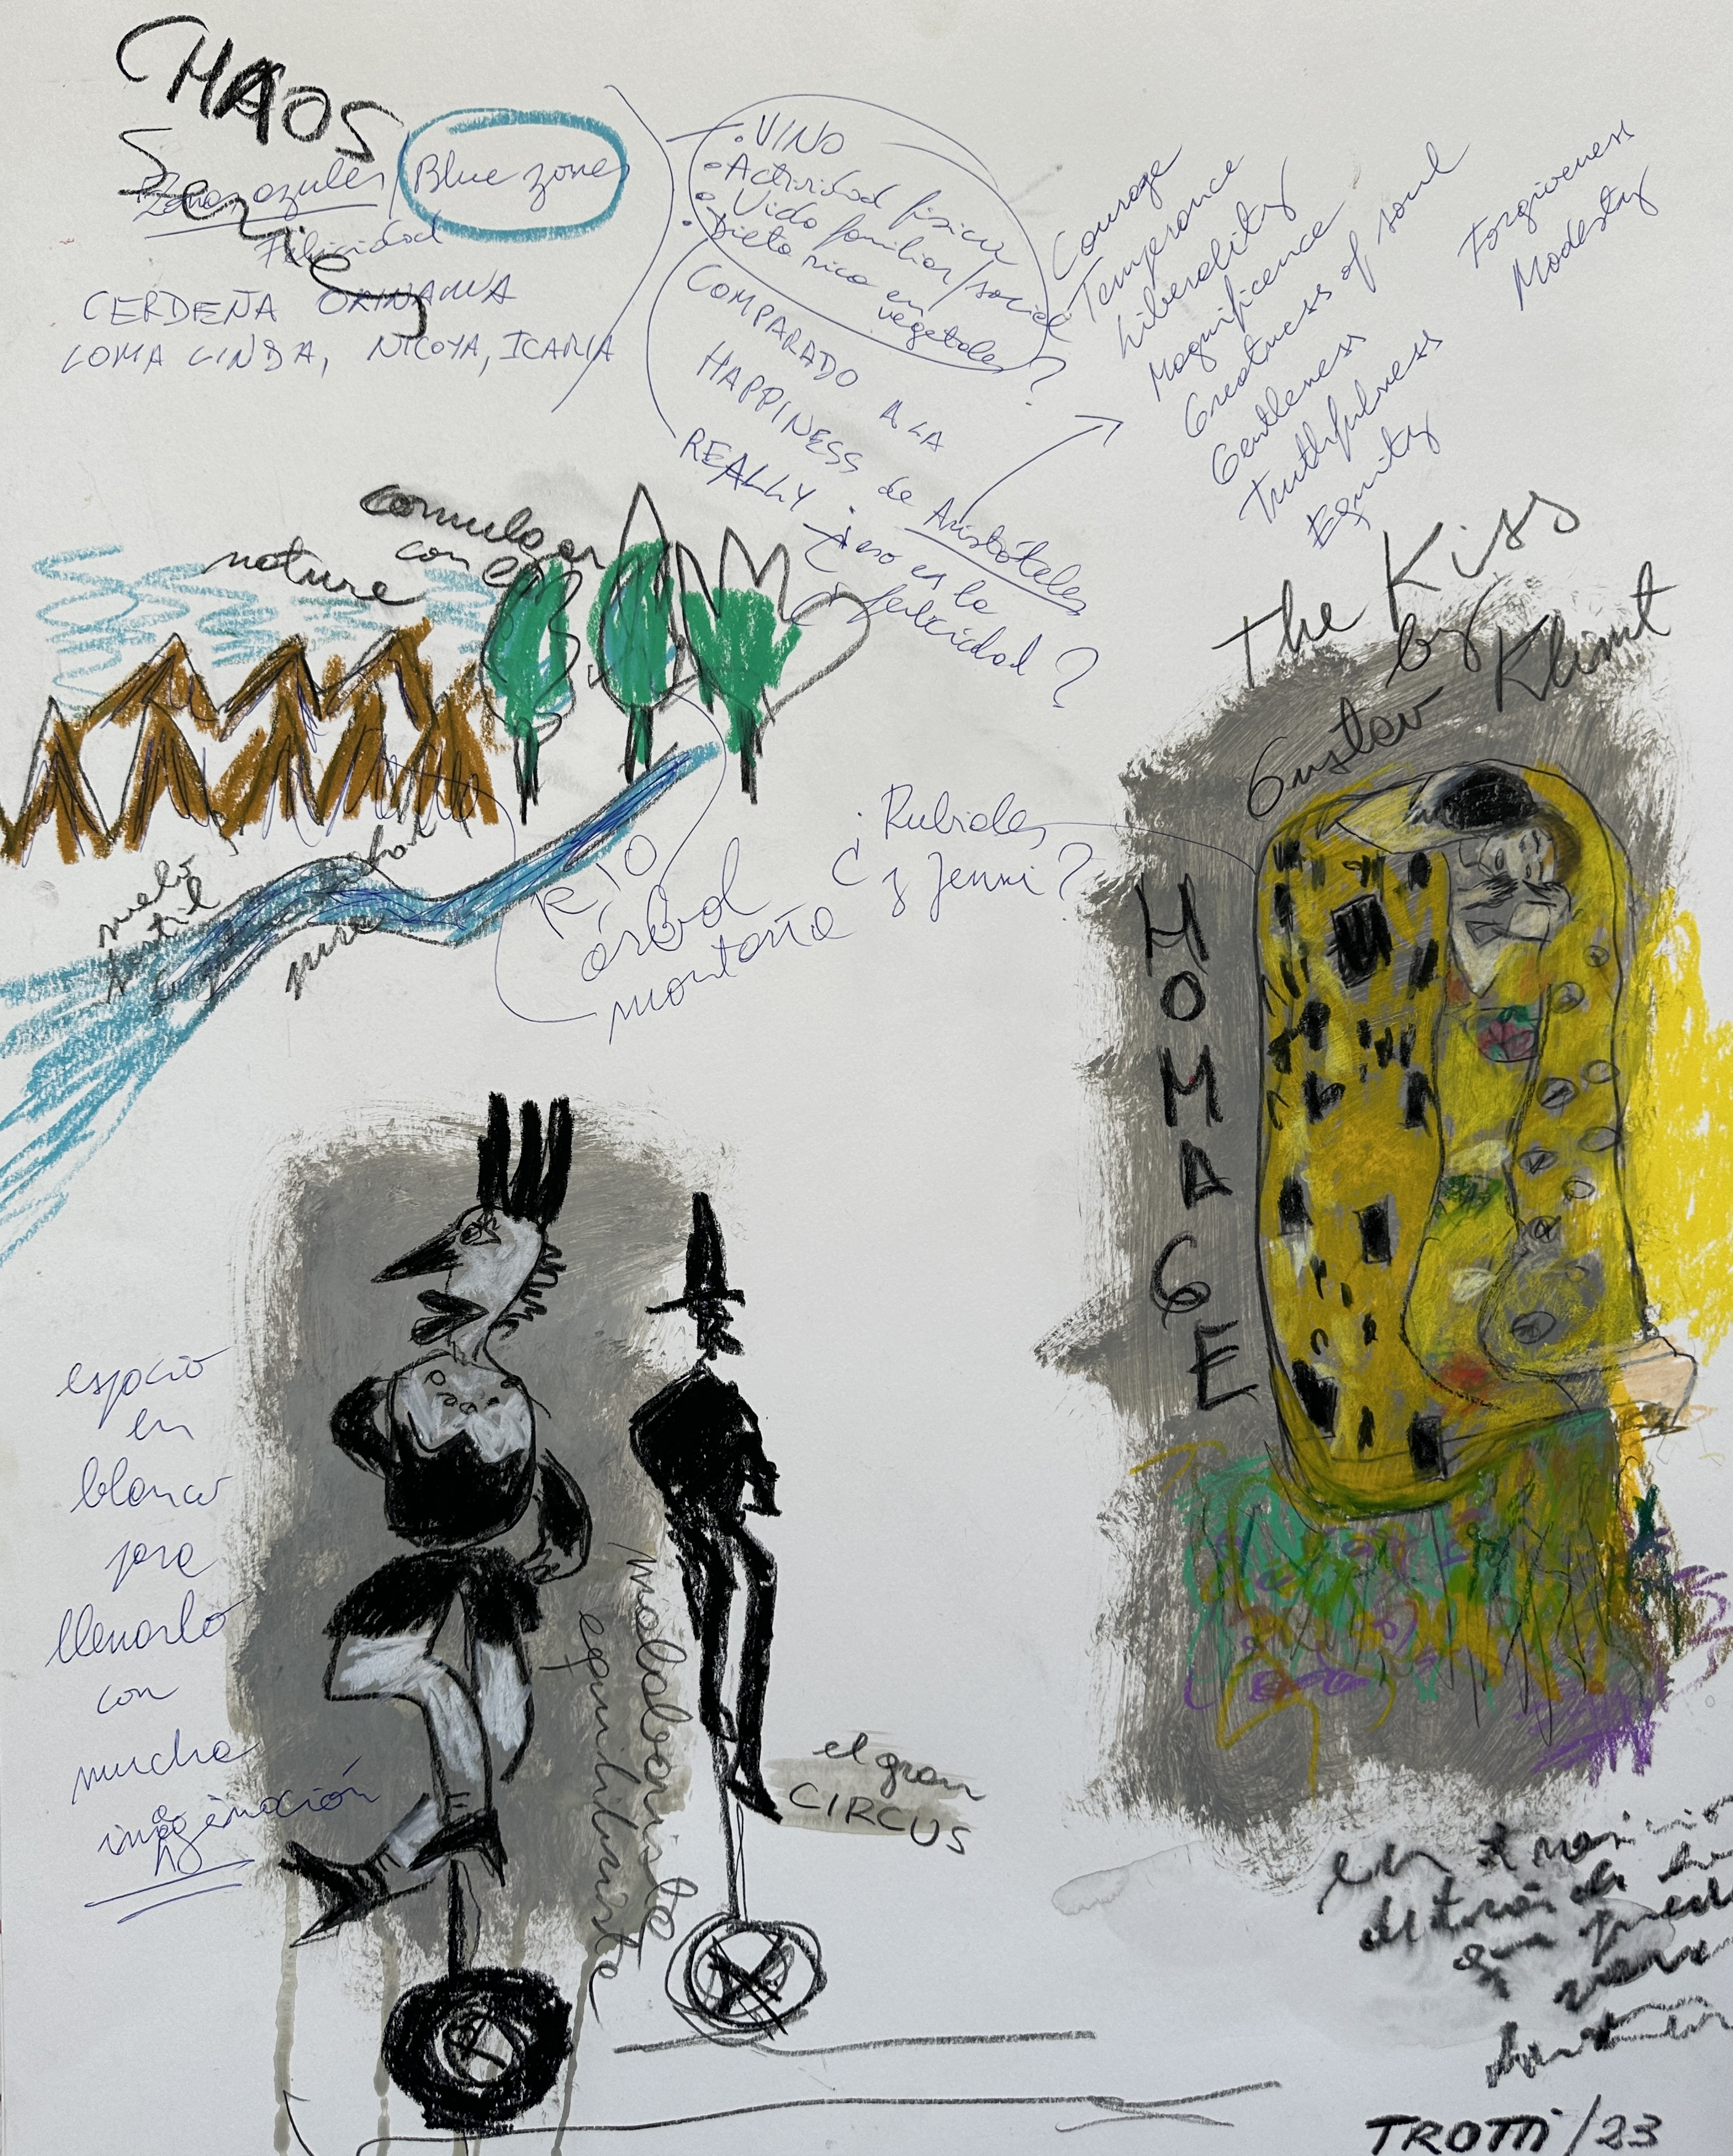 CHAOS
Series
Zonas azules / Blue zones
Felicidad
CERDEÑA OKINAWA
LOMA LINDA, NICOYA, ICARIA
• VINO
• Actividad física
• Vida familiar/social
• Dieta rica en
vegetales
COMPARADO A LA
HAPPINESS de Aristóteles
REALLY ¿eso es la
felicidad?
Courage
Temperance
Liberality
Magnificence
Greatness of soul
Gentleness
Truthfulness
Equity
Forgiveness
Modesty
nature
comulgar
con
RIO
árbol
montaña
¿Rubiales
y Jenni?
The Kiss
by
Gustav Klimt
HOMAGE
espacio
en
blanco
para
llenarlo
con
mucha
imaginación
malabarista
equilibrista
el gran
CIRCUS
TROTTI/23